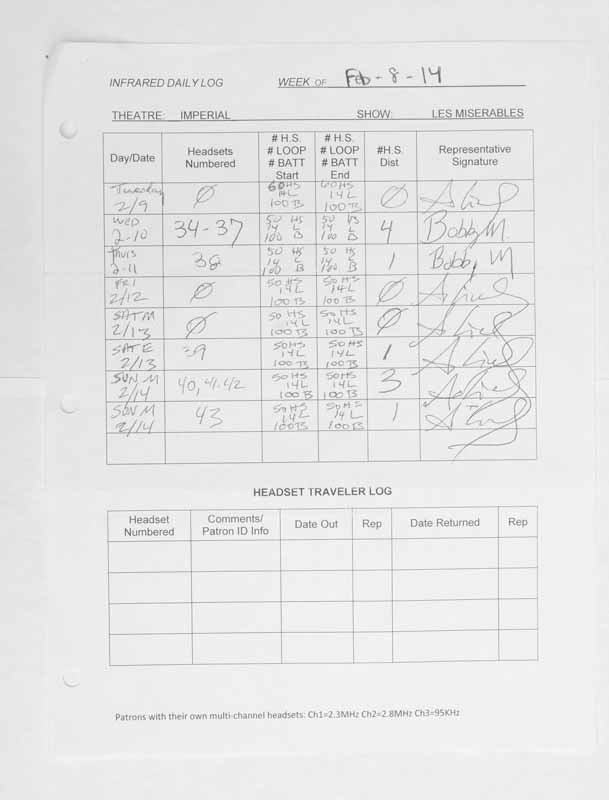 INFRARED DAILY LOG WEEK OF Feb-8-14
THEATRE: IMPERIAL SHOW: LES MISERABLES
Day/Date Headsets Numbered # H.S. # LOOP # BATT Start # H.S. # LOOP # BATT End #H.S. Dist Representative Signature
Tuesday 2/9 Ø 60HS 14L 100B 60HS 14L 100B Ø
WED 2-10 34-37 50 HS 14 L 100 B 50 HS 14 L 100 B 4 Bobby M.
Thurs 2-11 38 50 HS 14 L 100 B 50 HS 14 L 100 B 1 Bobby M
FRI 2/12 Ø 50HS 14L 100B 50HS 14L 100B Ø
SAT M 2/13 Ø 50HS 14L 100B 50HS 14L 100B Ø
SAT E 2/13 50HS 14L 100B 50HS 14L 100B 1
SUN M 2/14 40, 41-42 50HS 14L 100B 50HS 14L 100B 3
SUN M 2/14 43 50HS 14L 100B 50HS 14L 100B 1
HEADSET TRAVELER LOG
Headset Numbered Comments/ Patron ID Info Date Out Rep Date Returned Rep
Patrons with their own multi-channel headsets: Ch1=2.3MHz Ch2=2.8MHz Ch3=95KHz